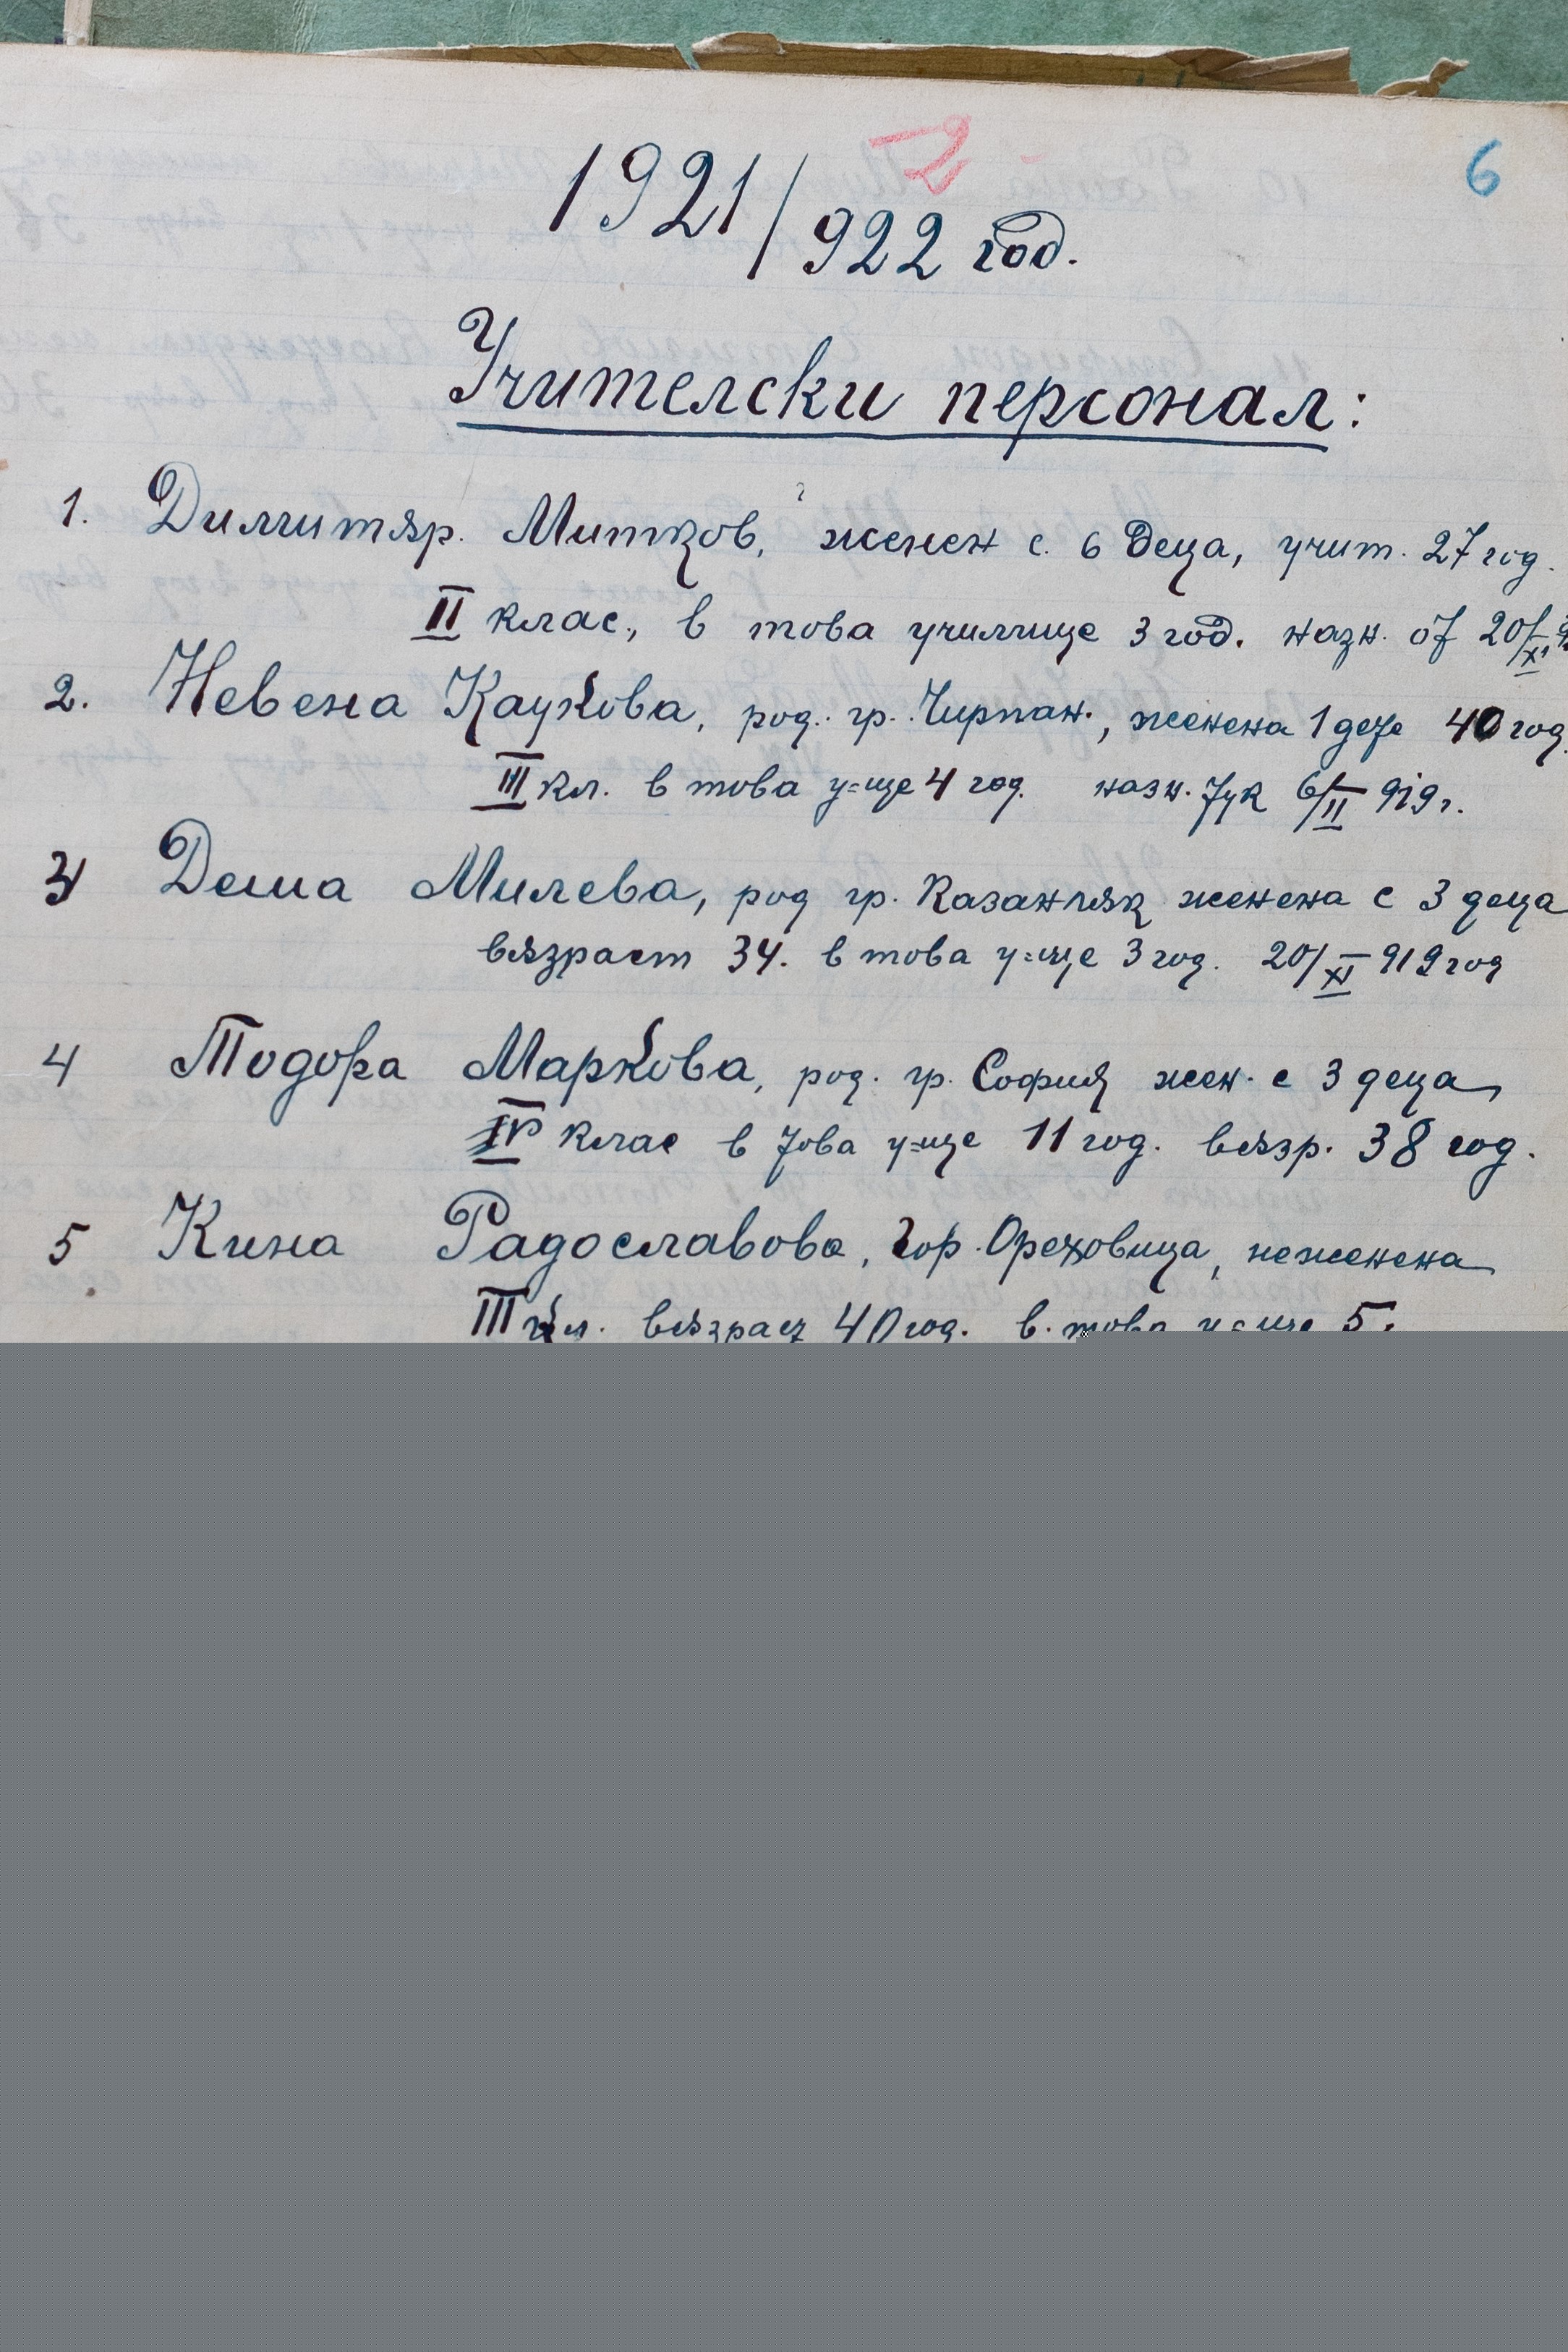 2
6
1921/922 год.
Учителски персонал:
1. Димитър. Митков, женен с. 6 деца, учит. 27 год.
II клас., в това училище 3 год. назн. от 20/XI
2. Невена Кацкова, род. гр. Чирпан., женена 1 дете 40 год.
III кл. в това у=ще 4 год. назн. тук 6/II 919 г.
3 Деша Милева, род гр. Казанлък женена с 3 деца
възраст 34. в това у=ще 3 год. 20/XI 919 год
4 Тодора Маркова, род. гр. София жен. с 3 деца
IV клас в това у=ще 11 год. възр. 38 год.
5 Кина Радославова, Гор. Ореховица, неженена
III кл. възраст 40 год. в. това у=ще 5.